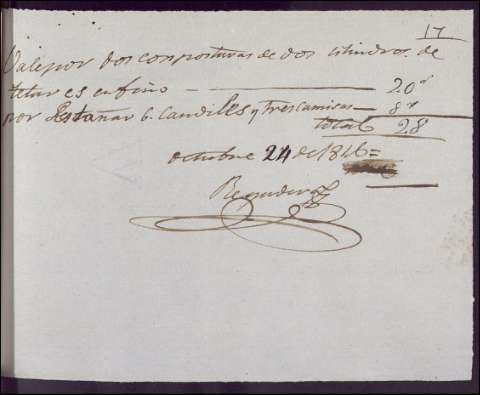 17
Vale por dos conposturas de dos cilindros de
telar es en fino — 20 r
por Estañar 6 Candiles y tres camisas — 8 r
total 28
octubre 24 de 1846 =